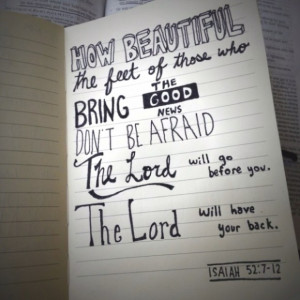 HOW BEAUTIFUL
the feet of those who
BRING THE GOOD NEWS
DON'T BE AFRAID
The Lord will go before you.
The Lord will have your back.
ISAIAH 52:7-12